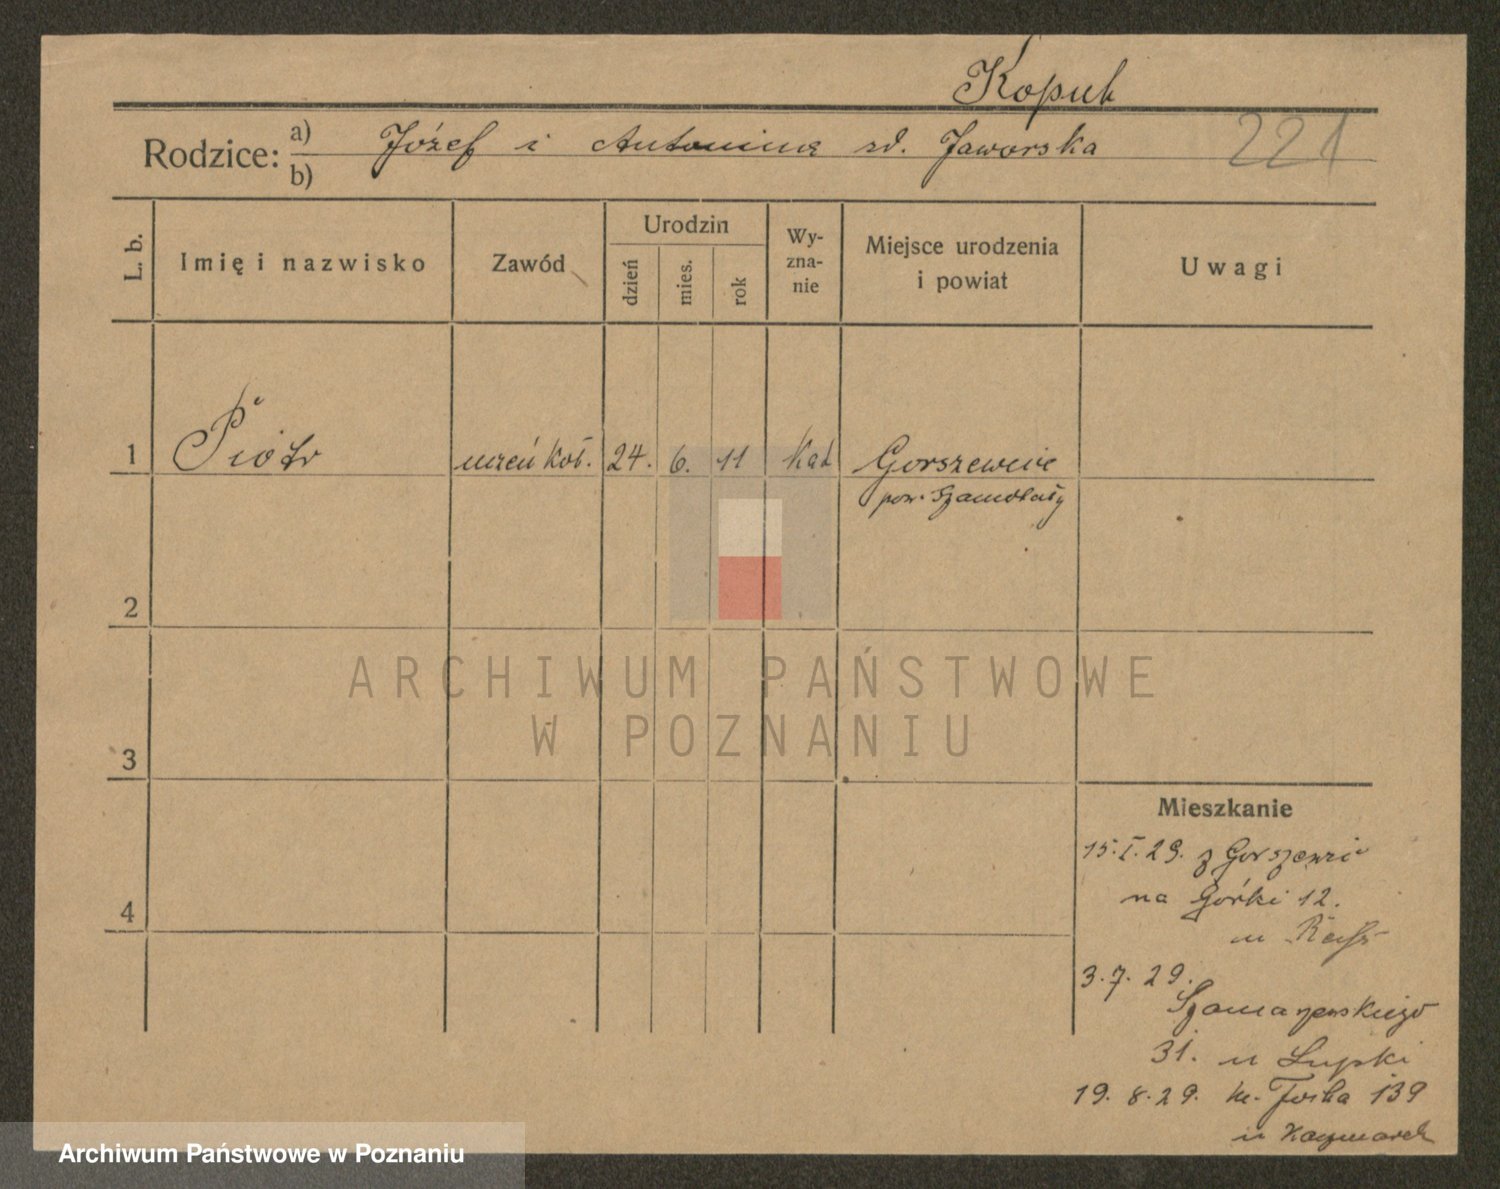 Kopuk
Rodzice: a) Józef i Antonina zd. Jaworska 221
b)
L. b.
Imię i nazwisko
Zawód
Urodzin
dzień
mies.
rok
Wy-
zna-
nie
Miejsce urodzenia
i powiat
Uwagi
1 Piotr uczeń koł. 24. 6. 11 kat Gorszewice
pow. Szamotuły
2
ARCHIWUM PAŃSTWOWE
W POZNANIU
3
Mieszkanie
15.I.29. z Gorszewic
4
na Górki 12.
u
3.7.29.
Szamarzewskiego
31. u Łupki
19.8.29. m. Focha 139
u Kaczmarek
Archiwum Państwowe w Poznaniu